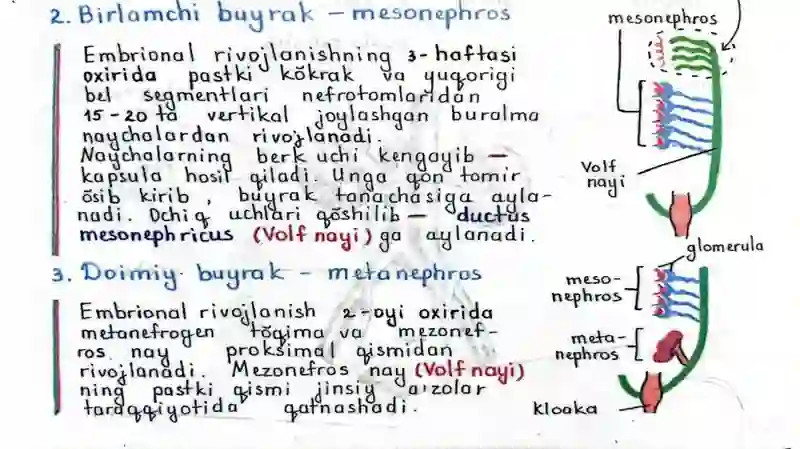 2. Birlamchi buyrak – mesonephros
Embrional rivojlanishning 3-haftasi
oxirida pastki kŏkrak va yuqorigi
bel segmentlari nefrotomlaridan
15-20 ta vertikal joylashgan buralma
naychalardan rivojlanadi.
Naychalarning berk uchi kengayib —
kapsula hosil qiladi. Unga qon tomir
ŏsib kirib, buyrak tanachasiga ayla-
nadi. Ochiq uchlari qŏshilib — ductus
mesonephricus (Volf nayi) ga aylanadi.
3. Doimiy buyrak – metanephros
Embrional rivojlanish 2-oyi oxirida
metanefrogen tŏqima va mezonef-
ros nay proksimal qismidan
rivojlanadi. Mezonefros nay (Volf nayi)
ning pastki qismi jinsiy a'zolar
taraqqiyotida qatnashadi.
mesonephros
Volf
nayi
glomerula
meso-
nephros
meta-
nephros
kloaka